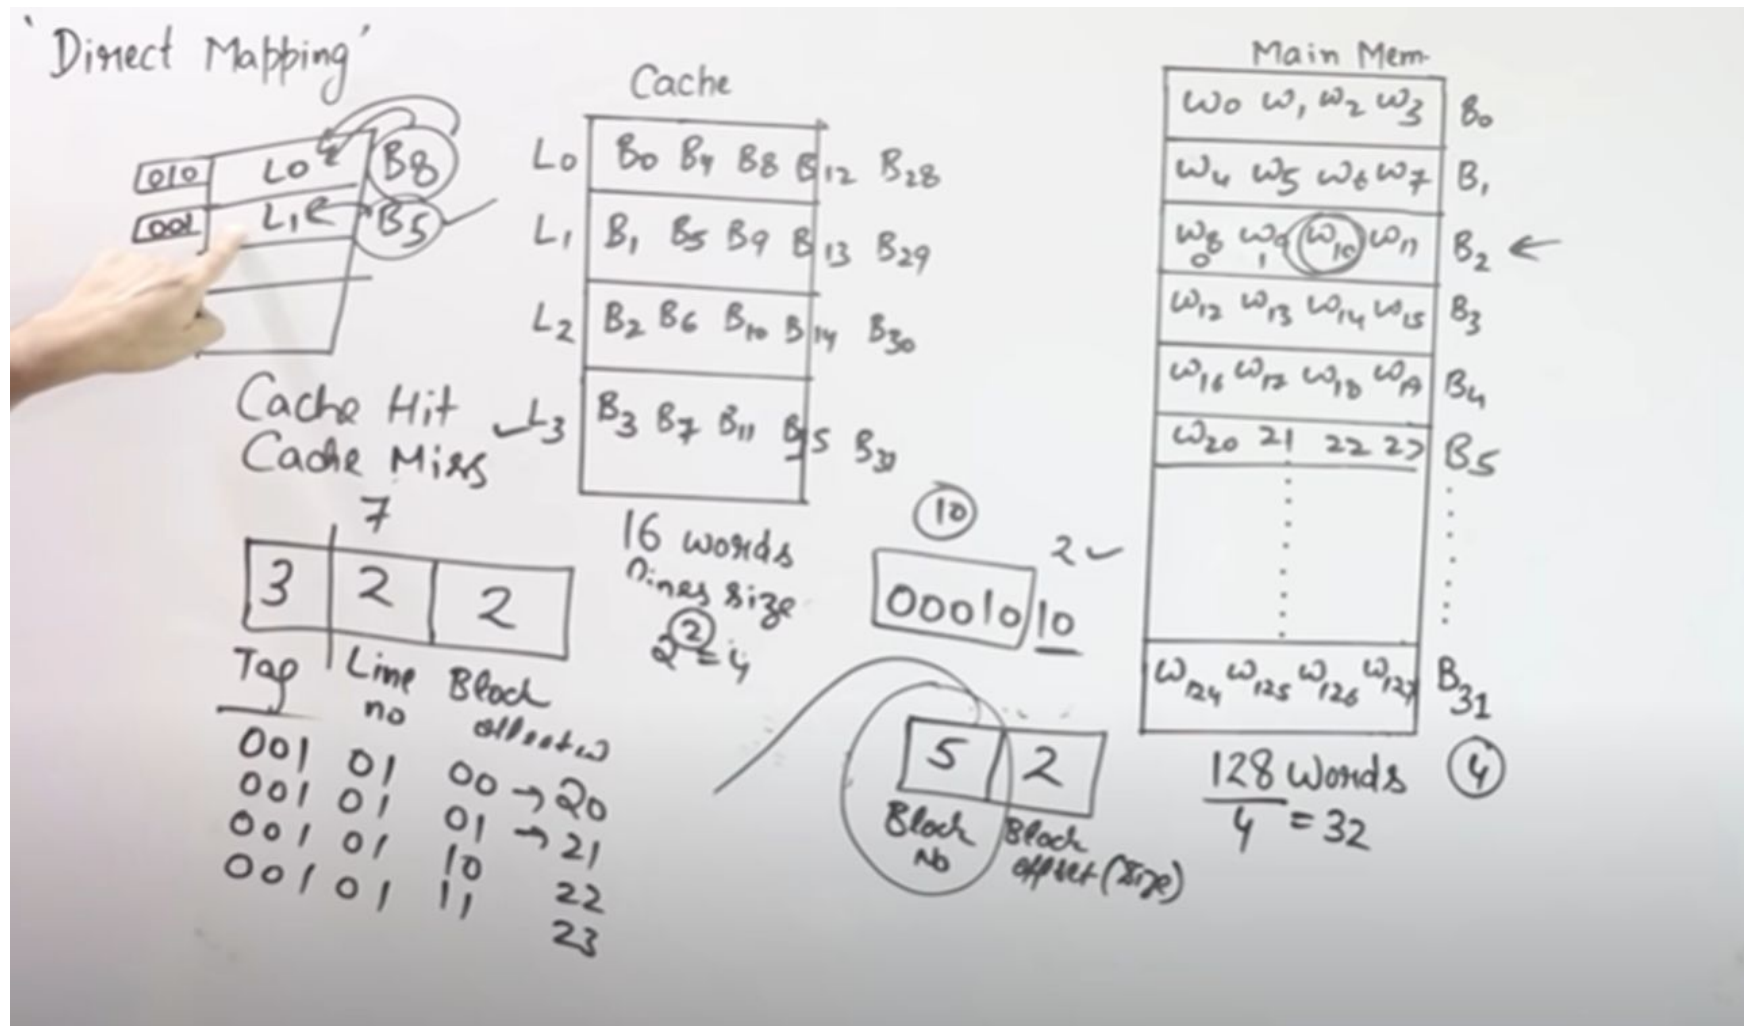 'Direct Mapping'
010 L0 B8
001 L1 B5
Cache Hit
Cache Miss
7
3 2 2
Tag Line no Block
001 01 00 → 20
001 01 01 → 21
001 01 10 22
001 01 11 23
Cache
L0 B0 B4 B8 B12 B28
L1 B1 B5 B9 B13 B29
L2 B2 B6 B10 B14 B30
L3 B3 B7 B11 B15 B31
16 words
lines size
2² = 4
10
0001010 2
5 2
Block No Block offset (Size)
Main Mem
W0 W1 W2 W3 B0
W4 W5 W6 W7 B1
W8 W9 W10 W11 B2
0 1
W12 W13 W14 W15 B3
W16 W17 W18 W19 B4
W20 21 22 23 B5
W124 W125 W126 W127 B31
128 Words 4
4 = 32